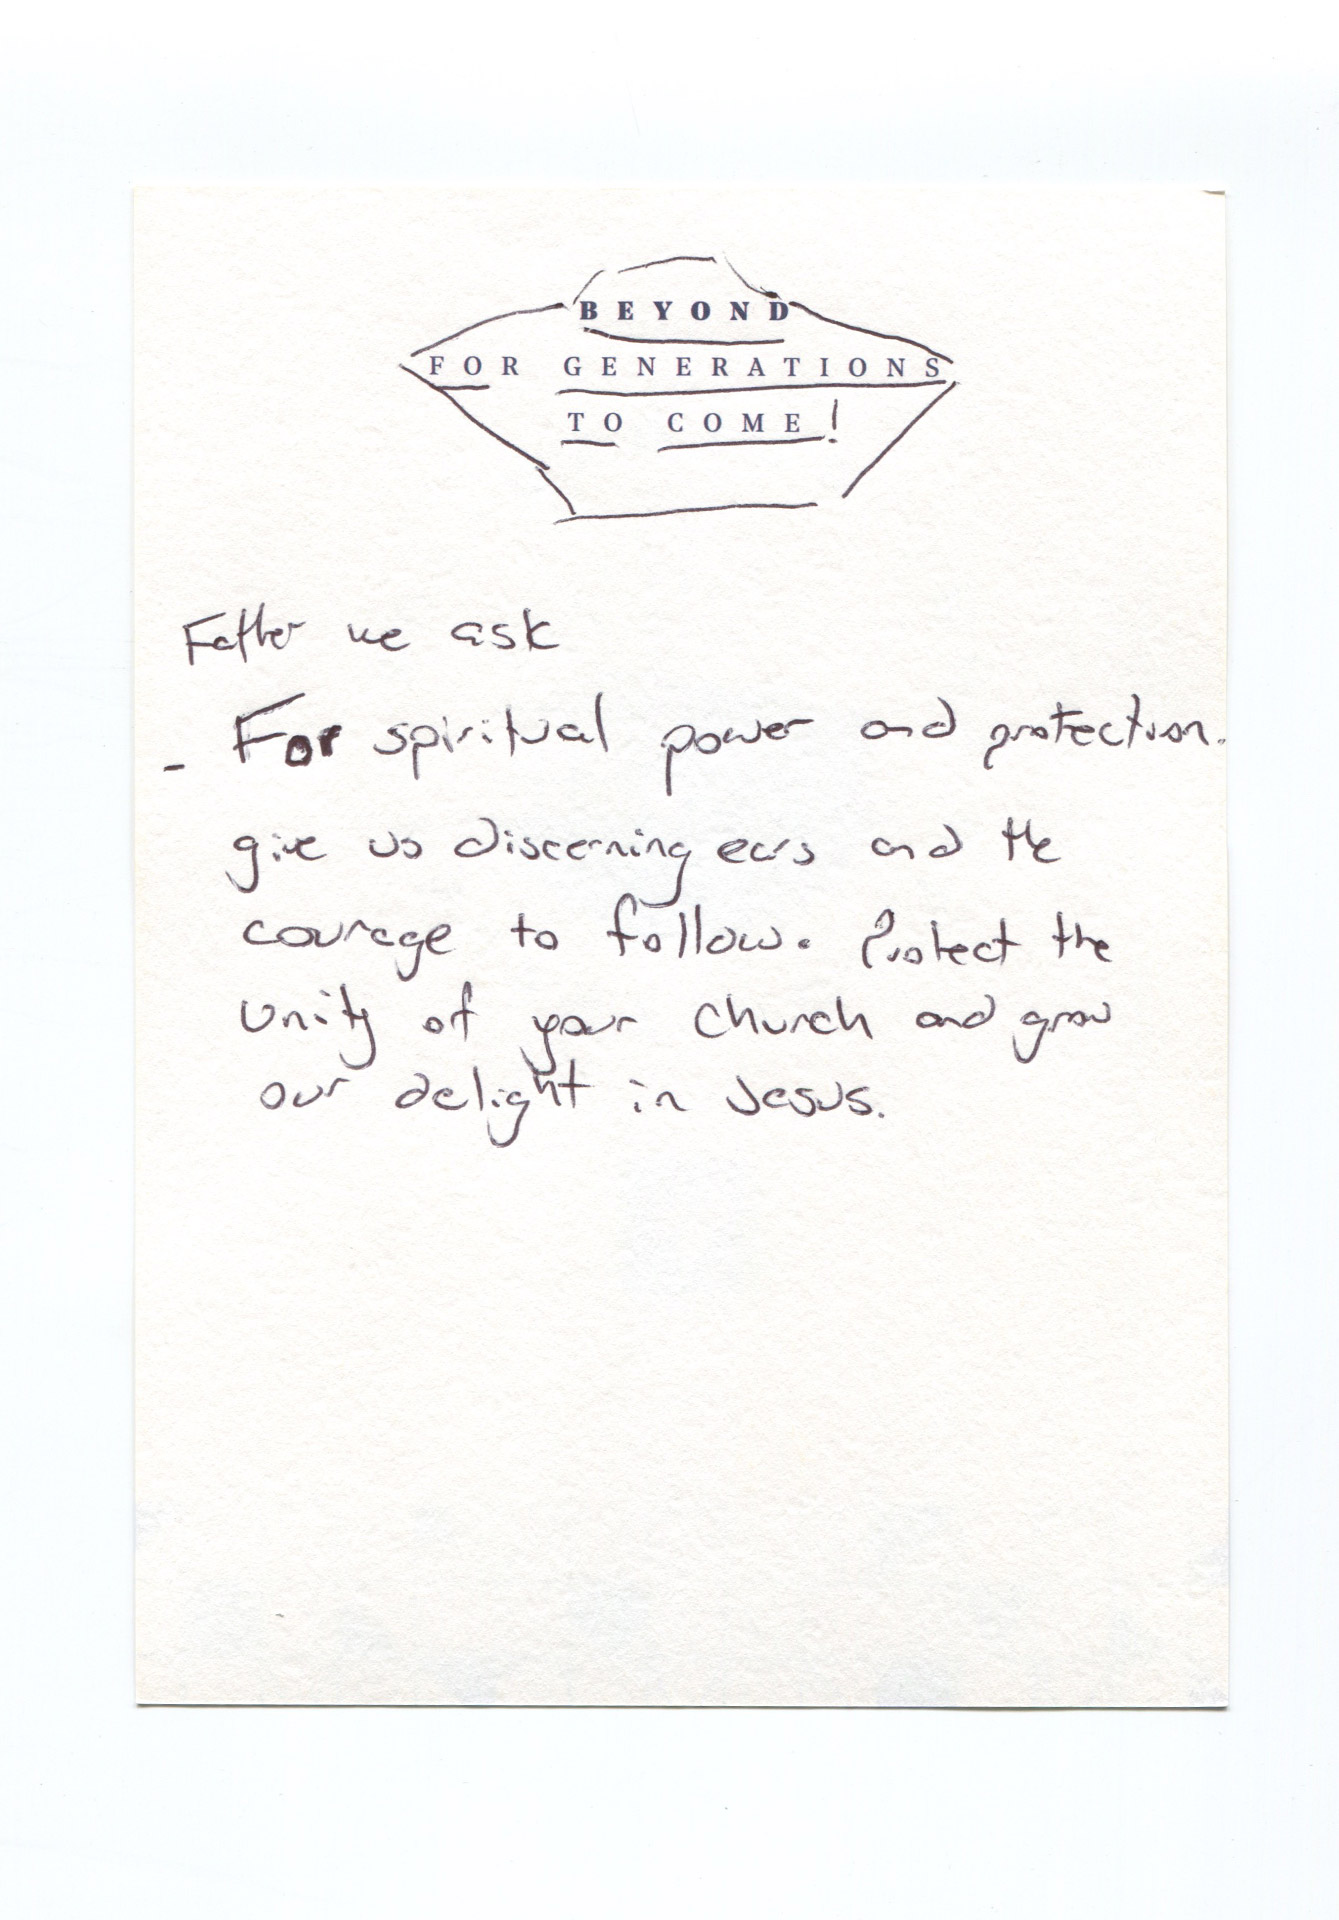 BEYOND
FOR GENERATIONS
TO COME!
Father we ask
- For spiritual power and protection.
give us discerning ears and the
courage to follow. Protect the
unity of your church and grow
our delight in Jesus.